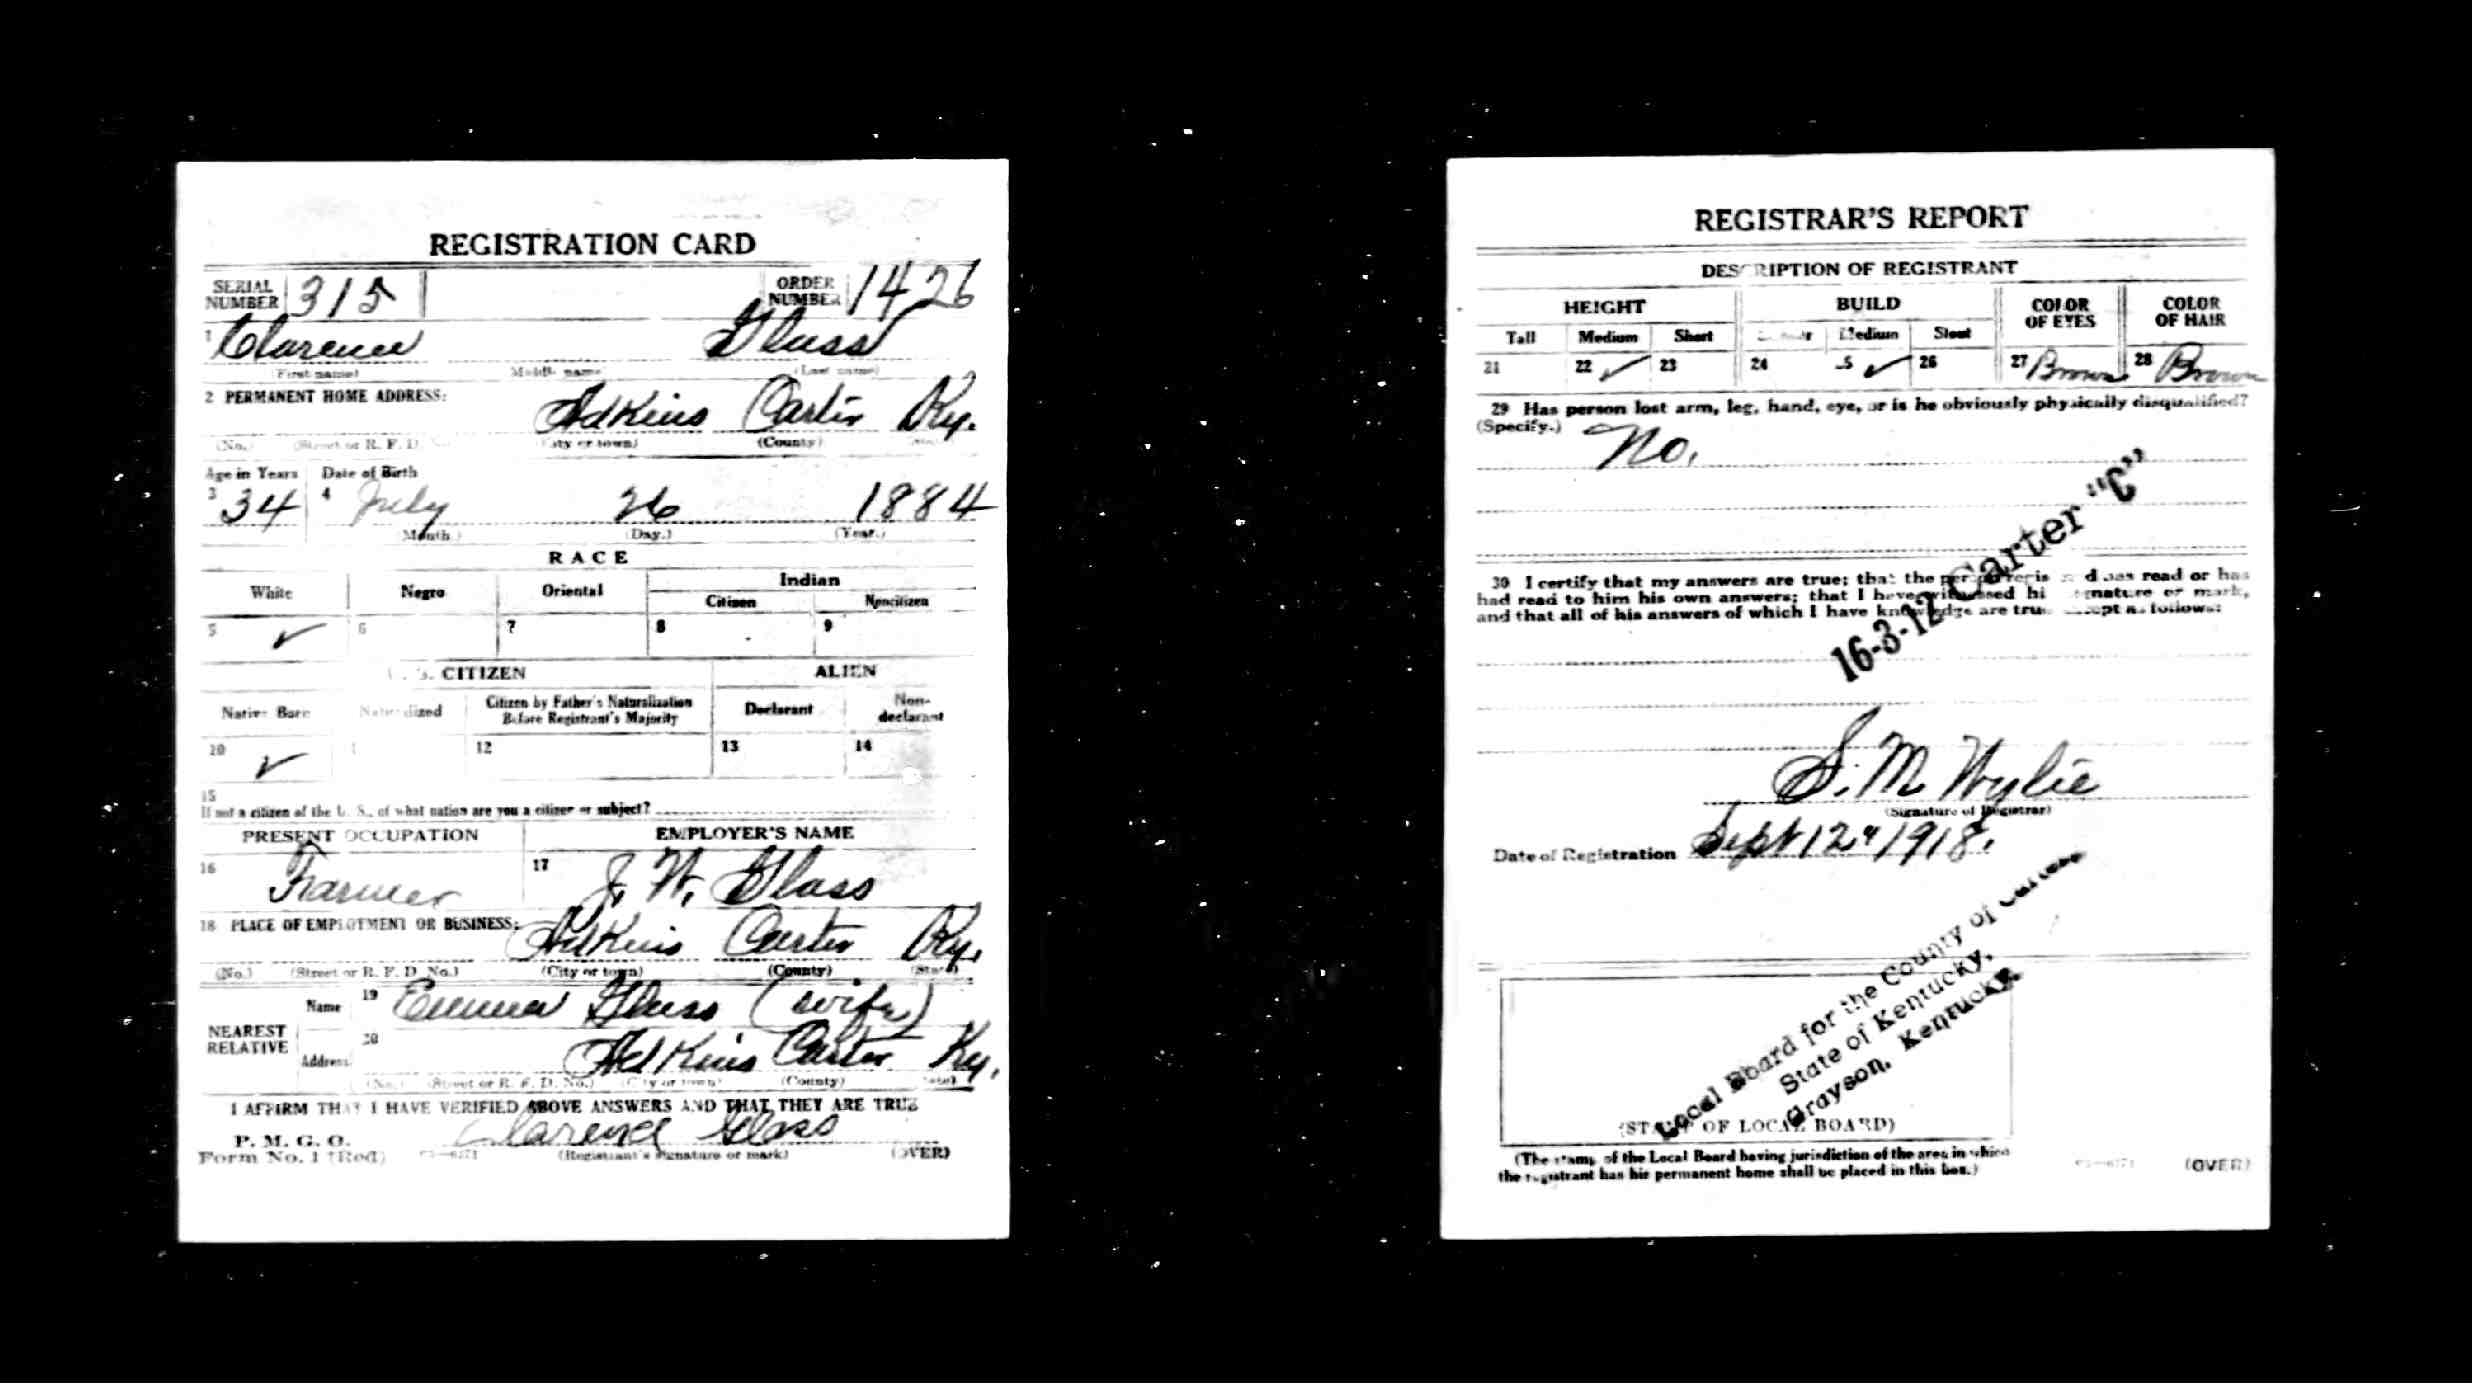 REGISTRATION CARD
SERIAL NUMBER 315 ORDER NUMBER 1426
1 Clarence Glass
(First name) (Middle name) (Last name)
2 PERMANENT HOME ADDRESS:
Adkins Carter Ky.
(No.) (Street or R. F. D. (City or town) (County)
Age in Years Date of Birth
3 34 4 July 26 1884
(Month.) (Day.) (Year.)
RACE
White Negro Oriental Indian
Citizen Noncitizen
5 ✓ 6 7 8 9
U. S. CITIZEN ALIEN
Native Born Naturalized Citizen by Father's Naturalization Before Registrant's Majority Declarant Non-declarant
10 ✓ 12 13 14
15
If not a citizen of the U. S., of what nation are you a citizen or subject?
PRESENT OCCUPATION EMPLOYER'S NAME
16 Farmer 17 J. W. Glass
18 PLACE OF EMPLOYMENT OR BUSINESS:
Adkins Carter Ky.
(No.) (Street or R. F. D. No.) (City or town) (County) (State)
NEAREST RELATIVE
Name 19 Emma Glass (wife)
Address 20 Adkins Carter Ky.
(No.) (Street or R. F. D. No.) (City or town) (County) (State)
I AFFIRM THAT I HAVE VERIFIED ABOVE ANSWERS AND THAT THEY ARE TRUE
P. M. G. O.
Form No. 1 (Red) Clarence Glass
(Registrant's signature or mark) (OVER)
REGISTRAR'S REPORT
DESCRIPTION OF REGISTRANT
HEIGHT BUILD COLOR OF EYES COLOR OF HAIR
Tall Medium Short Slender Medium Stout
21 22 ✓ 23 24 25 ✓ 26 27 Brown 28 Brown
29 Has person lost arm, leg, hand, eye, or is he obviously physically disqualified?
(Specify.) No.
16-3-12 Carter "C"
30 I certify that my answers are true; that the person registered has read or has
had read to him his own answers; that I have witnessed his signature or mark,
and that all of his answers of which I have knowledge are true, except as follows:
S. M. Wylie
(Signature of Registrar)
Date of Registration Sept 12" 1918.
Local Board for the County of Carter
State of Kentucky.
Grayson, Kentucky.
(STAMP OF LOCAL BOARD)
(The stamp of the Local Board having jurisdiction of the area in which
the registrant has his permanent home shall be placed in this box.)
(OVER)